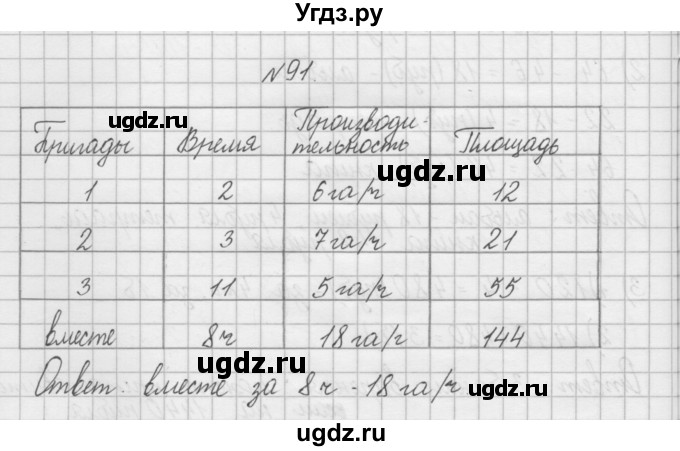 Угдз.ру
№91
Бригады Время Производи-тельность Площадь
1 2 6 га/ч 12
2 3 7 га/ч 21
3 11 5 га/ч 55
вместе 8ч 18 га/ч 144
Ответ: вместе за 8 ч - 18 га/ч
ugdz.ru
ugdz.ru
ugdz.ru
ugdz.ru
ugdz.ru
ugdz.ru
ugdz.ru